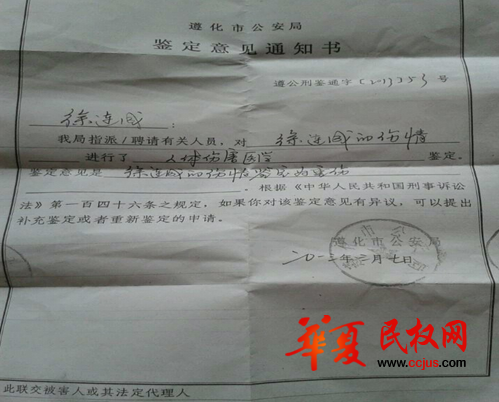 遵化市公安局
鉴定意见通知书
遵公刑鉴通字(2013)353号
徐连国
我局指派/聘请有关人员，对 徐连国的伤情
进行了 人体伤害医学 鉴定。
鉴定意见是 徐连国的伤情鉴定为重伤
。根据《中华人民共和国刑事诉讼
法》第一百四十六条之规定，如果你对该鉴定意见有异议，可以提出
补充鉴定或者重新鉴定的申请。
遵化市公安局
二〇一三年 月七日
华夏民权网
www.ccjus.com
此联交被害人或其法定代理人